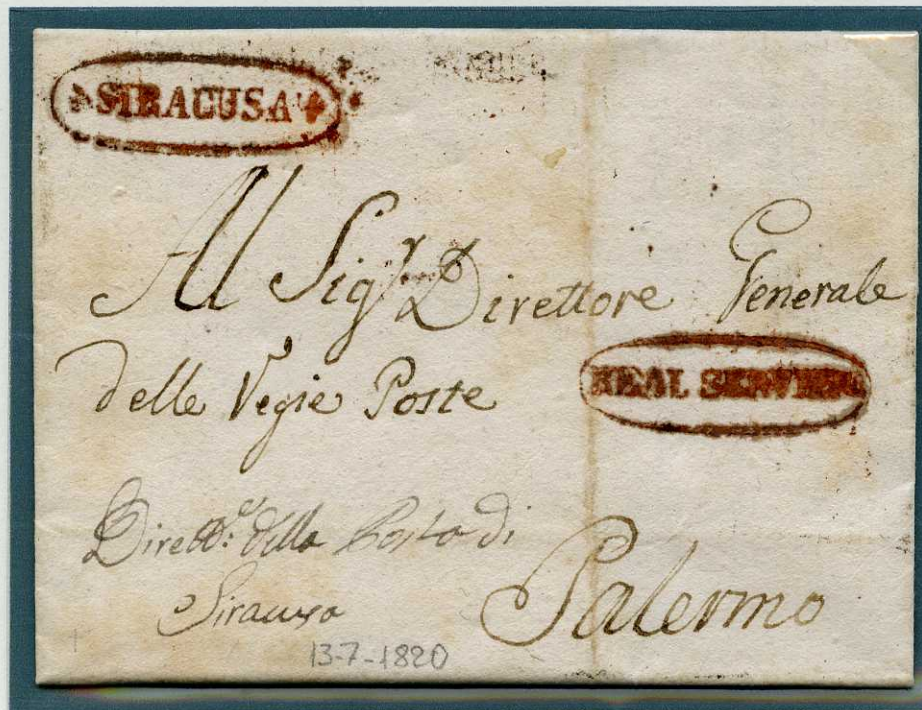 SIRACUSA
Al Sigr Direttore Generale
delle Regie Poste
REAL SERVIZIO
Dirett.e della Posta di
Siracusa
Palermo
13-7-1820